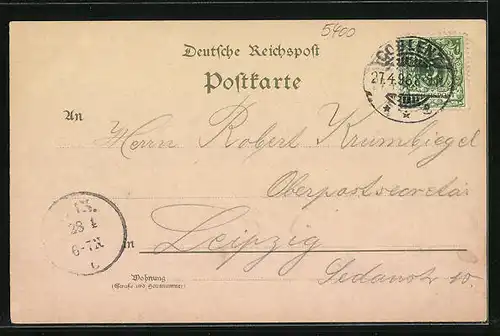 5400
Deutsche Reichspost
Postkarte
COBLENZ
27.4.98
An
Herrn Robert Krumbiegel
Oberpostsecretär
28 4
6-7N
c
in Leipzig
Wohnung
(Straße und Hausnummer)
Sedanstr 10.